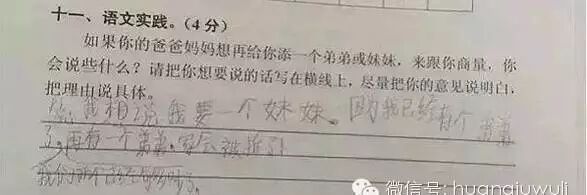 十一、语文实践。（4分）
如果你的爸爸妈妈想再给你添一个弟弟或妹妹，来跟你商量，你
会说些什么？请把你想要说的话写在横线上，尽量把你的意见说明白，
把理由说具体。
我相说我要一个妹妹。因为我已经有个弟弟
了，再有一个弟弟，家会被拆了！
我们那个
微信号: huangjuwuli